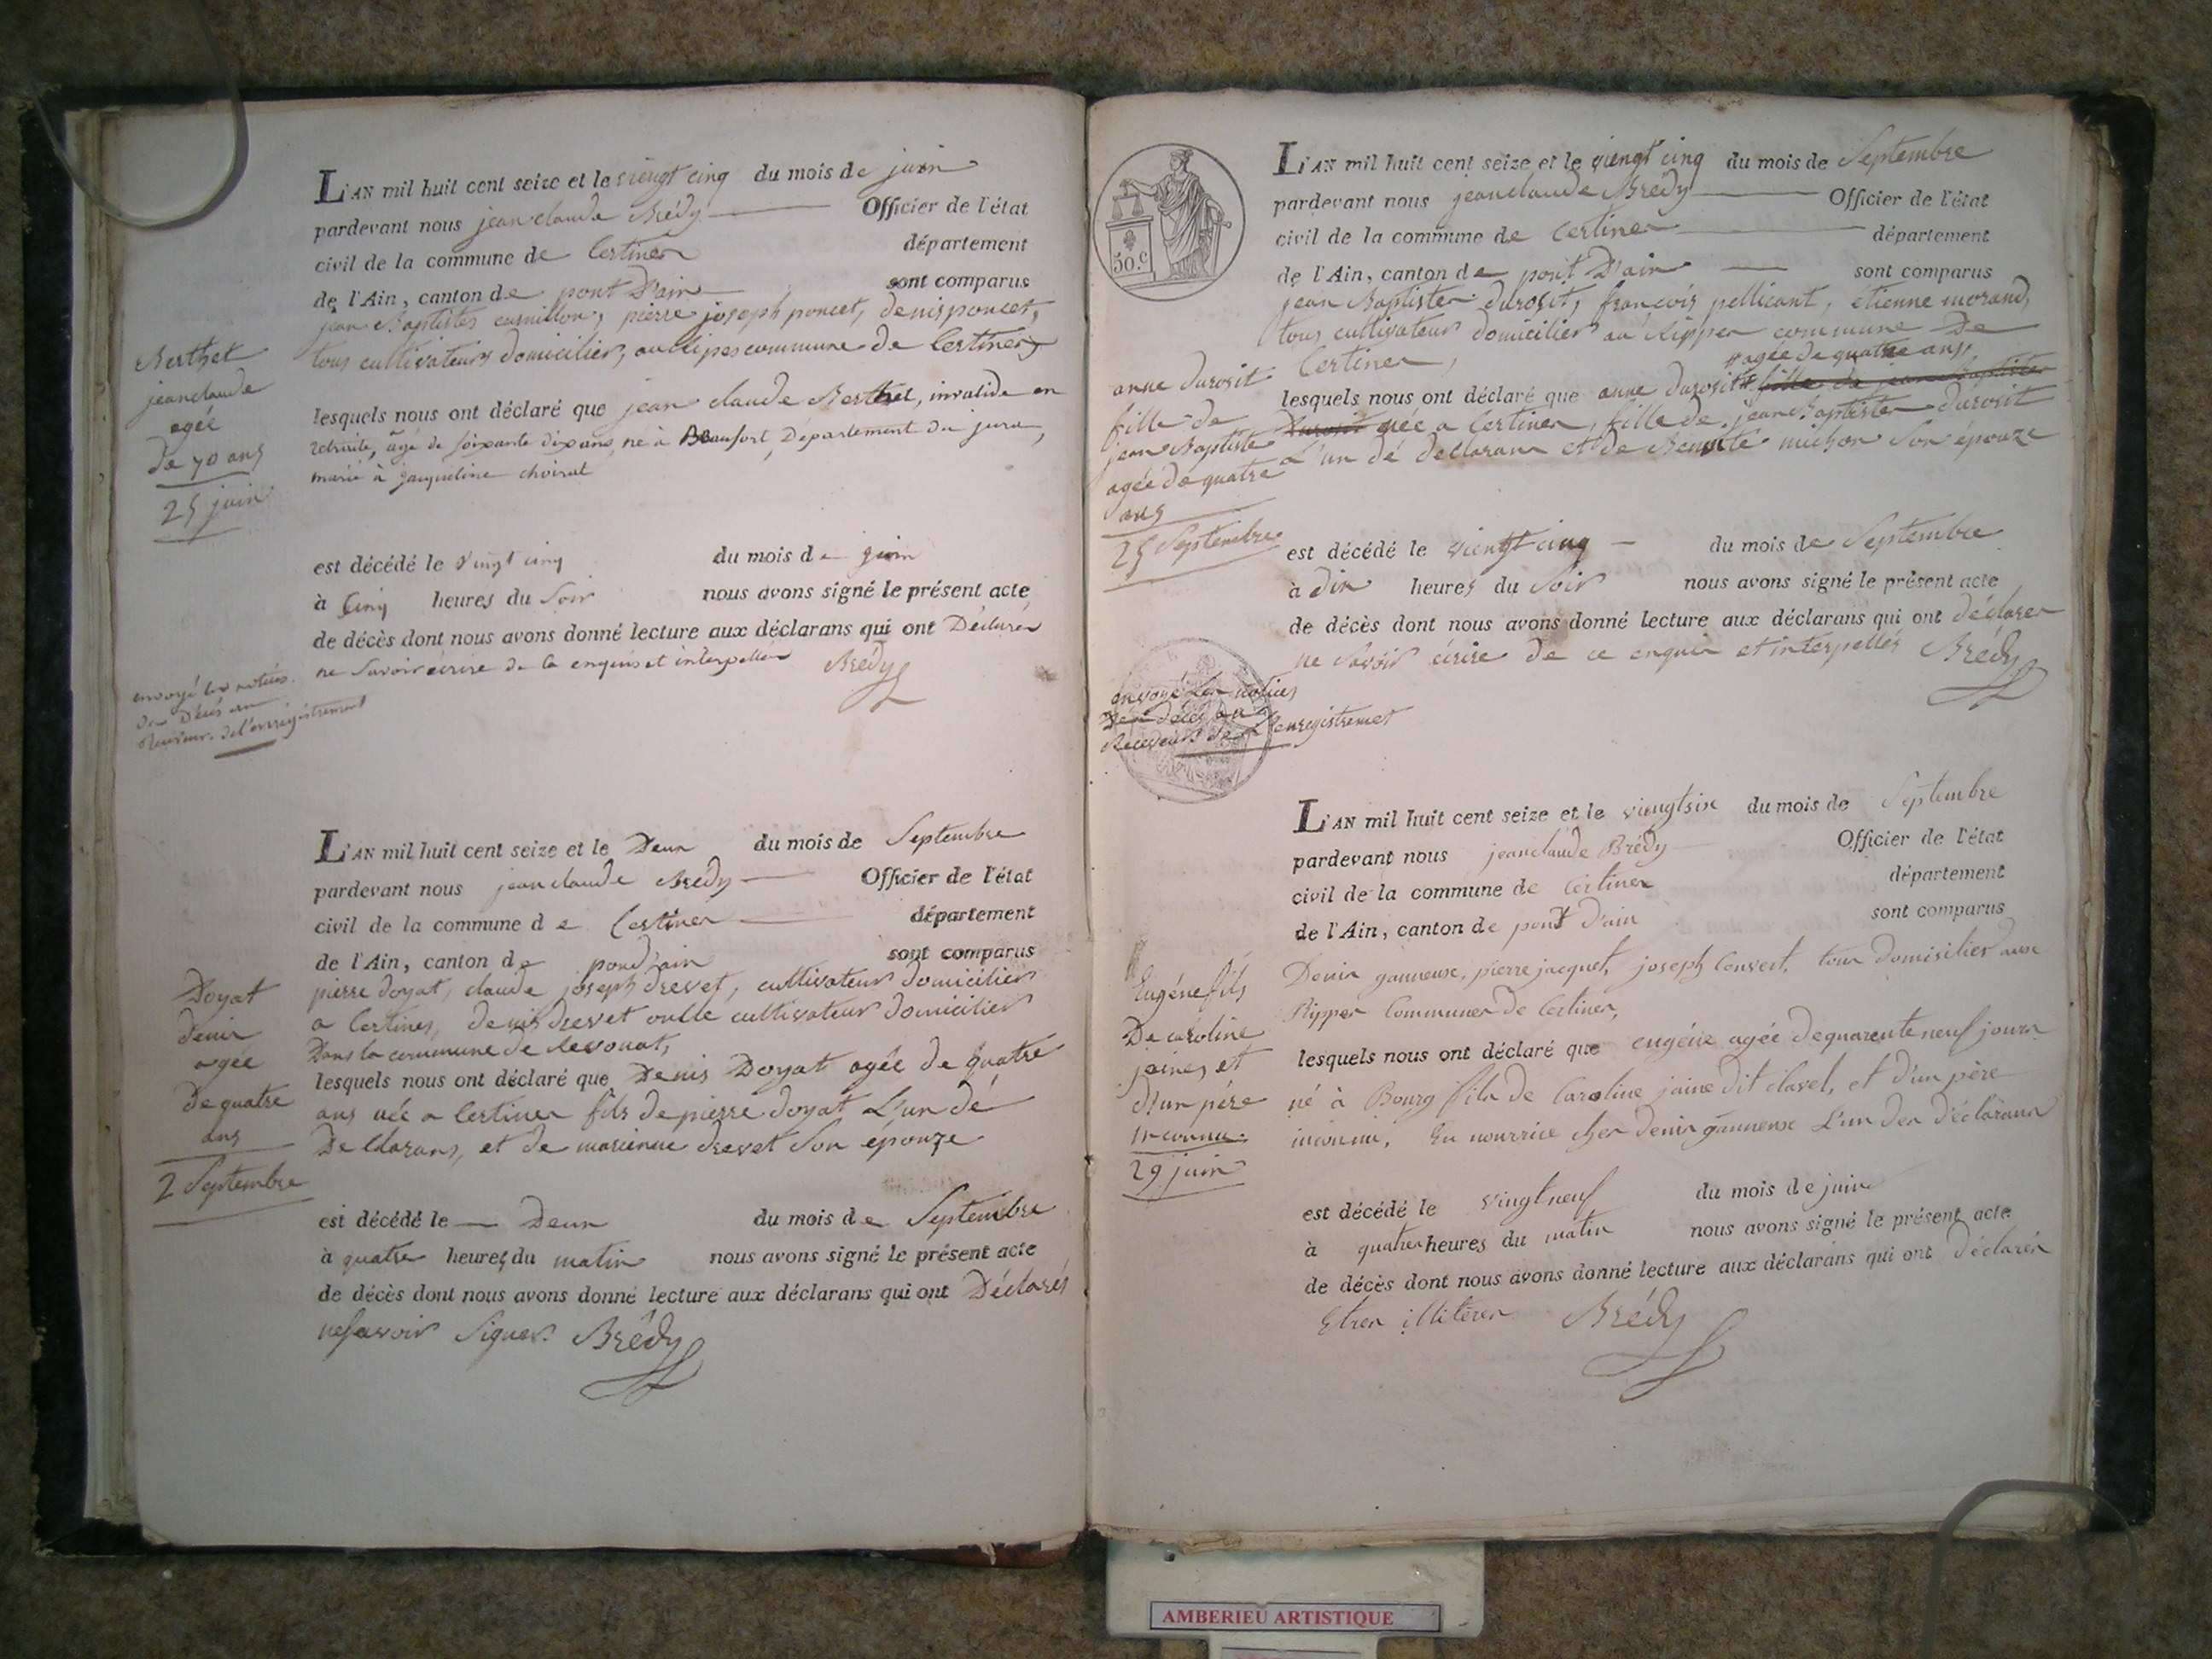 L'AN mil huit cent seize et le viengt cinq du mois de juin
pardevant nous jean claude Brédy Officier de l'état
civil de la commune de Certines département
de l'Ain, canton de pont D'ain sont comparus
jean Baptistes cusnillon, pierre joseph poncet, denis poncet,
tous cultivateurs domicilier, au commune de Certines
Berthet
jeanclaude
agée
De 70 ans
25 juin
lesquels nous ont déclaré que jean claude Berthet, invalide en
retraite, âgé de soixante dix ans, né à Beaufort, Département du jura,
marié à jacqueline choirat
est décédé le vingt cinq du mois de juin
à Cinq heures du Soir nous avons signé le présent acte
de décès dont nous avons donné lecture aux déclarans qui ont Déclarer
ne savoir écrire de ce enquis et interpeller Brédy
envoyé les notices
De Décès au
Receveur de l'enregistrement
L'AN mil huit cent seize et le Deux du mois de Septembre
pardevant nous jean claude Brédy Officier de l'état
civil de la commune de Certines département
de l'Ain, canton de pond'ain sont comparus
pierre doyat, claude joseph drevet, cultivateur domicilier
a Certines, denis drevet cultivateur domicilier
Dans la commune de
Doyat
denis
agée
De quatre
ans
2 Septembre
lesquels nous ont déclaré que Denis Doyat agée de quatre
ans née a Certines fils de pierre doyat L'un dé
De Clarans, et de marienne drevet Son épouze
est décédé le Deux du mois de Septembre
à quatre heures du matin nous avons signé le présent acte
de décès dont nous avons donné lecture aux déclarans qui ont Déclarés
ne savoir Signer. Brédy
50.c
L'AN mil huit cent seize et le viengt cinq du mois de Septembre
pardevant nous jeanclaude Brédy Officier de l'état
civil de la commune de Certines département
de l'Ain, canton de pont D'ain sont comparus
jean Baptister durosit, francois pellicant, étienne morand,
tous cultivateur domicilier au Ripper commune De
Certines,
anne durosit
fille de
jean Baptiste
agée de quatre
ans
25 Septembre
agée de quatre ans,
lesquels nous ont déclaré que anne durosit fille de jean Baptiste
Durosit née a Certines, fille de jean Baptister durosit
L'un dé declarans et de Benoite michon Son épouze
est décédé le viengt cinq du mois de Septembre
à dix heures du Soir nous avons signé le présent acte
de décès dont nous avons donné lecture aux déclarans qui ont déclarer
ne Savoir écrire de ce enquis et interpellés Brédy
envoyé Les notices
De décès au
Receveur de L'enregistremet
L'AN mil huit cent seize et le viengtsix du mois de Septembre
pardevant nous jeanclaude Brédy Officier de l'état
civil de la commune de Certines département
de l'Ain, canton de pont D'ain sont comparus
Denis ganneuse, pierre jacquet, joseph Convert, tous domicilier aux
Ripper Communes de Certines,
Eugéne fils
De caroline
joines et
d'un pére
inconnu
29 juin
lesquels nous ont déclaré que eugéne agée de quarente neuf jours
né à Bourg fils de Caroline jaine dit clavel, et d'un père
inconnu, En nourrice chez denis ganneuse L'un des déclarans
est décédé le vingt neuf du mois de juin
à quatre heures du matin nous avons signé le présent acte
de décès dont nous avons donné lecture aux déclarans qui ont déclarés
Etres illitérés Brédy
AMBERIEU ARTISTIQUE